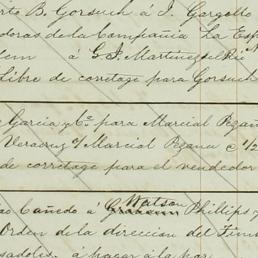 rto B. Gorsuch á J. Gargollo
doras de la Compañia La Esp
dem á G. J. Martinez del Rio
Libre de corretage para Gorsuch
Garcia y Cª para Marcial
Veracruz o/ Marcial c 1/2
de corretage para el vendedor
Cañedo á Watson Phillips y
Orden de la direccion del
á pagar a la par